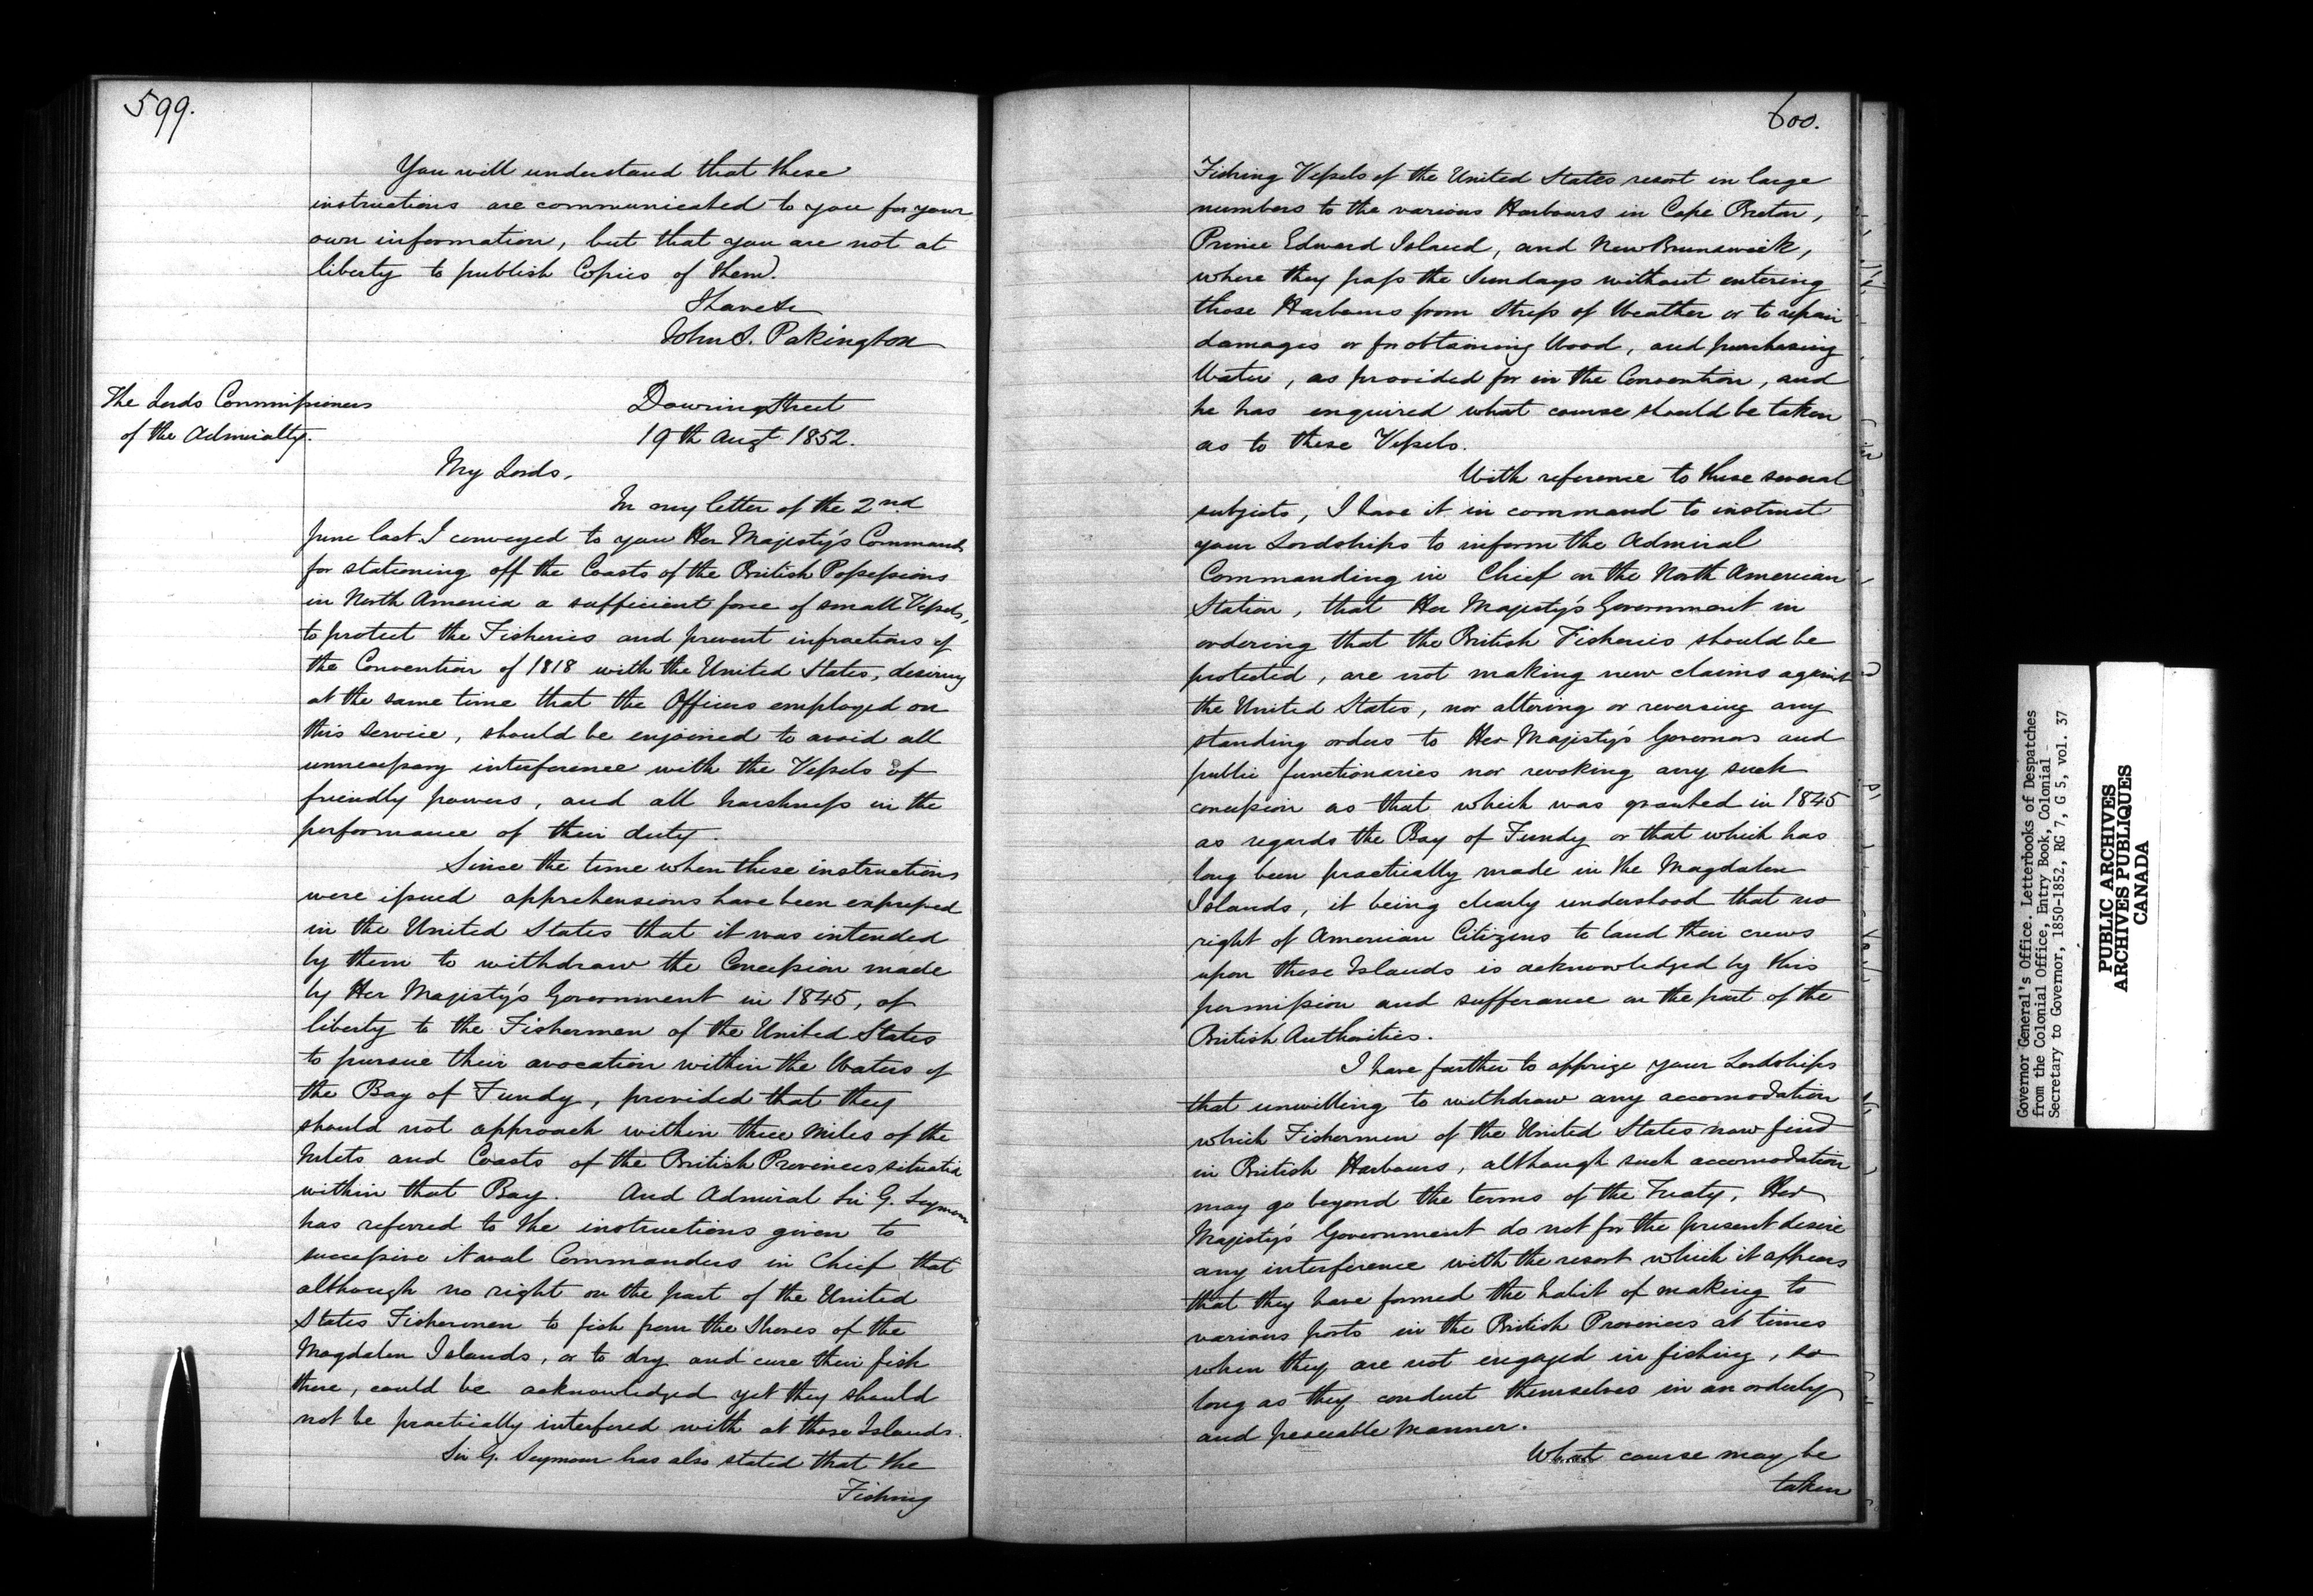 599.
You will understand that these
instructions are communicated to you for your
own information, but that you are not at
liberty to publish Copies of them.
I have &c
John S. Pakington
The Lords Commissioners
of the Admiralty.
Downing Street
19th Augt. 1852.
My Lords,
In my letter of the 2nd
June last I conveyed to you Her Majesty's Commands
for stationing off the Coasts of the British Possessions
in North America a sufficient force of small Vessels,
to protect the Fisheries and prevent infractions of
the Convention of 1818 with the United States, desiring
at the same time that the Officers employed on
this service, should be enjoined to avoid all
unnecessary interference with the Vessels of
friendly powers, and all harshness in the
performance of their duty.
Since the time when these instructions
were issued apprehensions have been expressed
in the United States that it was intended
by them to withdraw the Concession made
by Her Majesty's Government in 1845, of
liberty to the Fishermen of the United States
to pursue their avocation within the Waters of
the Bay of Fundy, provided that they
should not approach within three Miles of the
Inlets and Coasts of the British Provinces situated
within that Bay. And Admiral Sir G. Seymour
has referred to the instructions given to
successive Naval Commanders in Chief that
although no right on the part of the United
States Fishermen to fish from the Shores of the
Magdalen Islands, or to dry and cure their fish
there, could be acknowledged yet they should
not be practically interfered with at those Islands.
Sir G. Seymour has also stated that the
Fishing
600.
Fishing Vessels of the United States resort in large
numbers to the various Harbours in Cape Breton,
Prince Edward Island, and New Brunswick,
where they pass the Sundays without entering
those Harbours from Stress of Weather or to repair
damages or for obtaining Wood, and purchasing
Water, as provided for in the Convention, and
he has enquired what course should be taken
as to these Vessels.
With reference to these several
subjects, I have it in command to instruct
your Lordships to inform the Admiral
Commanding in Chief on the North American
Station, that Her Majesty's Government in
ordering that the British Fisheries should be
protected, are not making new claims against
the United States, nor altering or reversing any
standing orders to Her Majesty's Governors and
public functionaries nor revoking any such
concession as that which was granted in 1845
as regards the Bay of Fundy or that which has
long been practically made in the Magdalen
Islands, it being clearly understood that no
right of American Citizens to land their crews
upon these Islands is acknowledged by this
permission and sufferance on the part of the
British Authorities.
I have further to apprize your Lordships
that unwilling to withdraw any accomodation
which Fishermen of the United States now find
in British Harbours, although such accomodation
may go beyond the terms of the Treaty, Her
Majesty's Government do not for the present desire
any interference with the resort which it appears
that they have formed the habit of making to
various ports in the British Provinces at times
when they are not engaged in fishing, so
long as they conduct themselves in an orderly
and peaceable Manner.
What course may be
taken
Governor General's Office. Letterbooks of Despatches
from the Colonial Office, Entry Book, Colonial
Secretary to Governor, 1850-1852, RG 7, G 5, vol. 37
PUBLIC ARCHIVES
ARCHIVES PUBLIQUES
CANADA